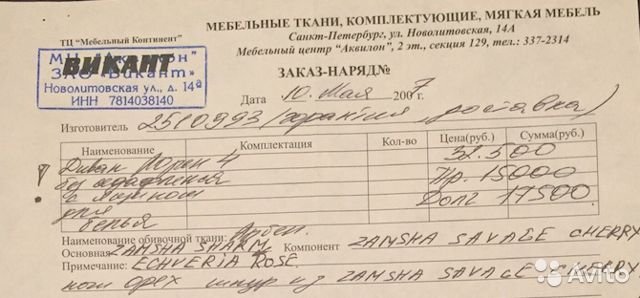 МЕБЕЛЬНЫЕ ТКАНИ, КОМПЛЕКТУЮЩИЕ, МЯГКАЯ МЕБЕЛЬ
Санкт-Петербург, ул. Новолитовская, 14А
Мебельный центр "Аквилон", 2 эт., секция 129, тел.: 337-2314
ТЦ "Мебельный Континент"
ВИКАНТ
ЗАО "Викант"
Новолитовская ул., д. 14а
ИНН 7814038140
ЗАКАЗ-НАРЯД№
Дата 10. Мая 2007г.
Изготовитель 2510993 (хранения, доставка)
Наименование Комплектация Кол-во Цена(руб.) Сумма(руб.)
Диван 4 32.500
без Пр. 15000
с ящиком Долг 17500
для
белья
Наименование обивочной ткани:
Основная ZAMSHA SHARM Компонент ZAMSHA SAVAGE CHERRY
Примечание: ECHVERIA ROSE
ноги орех шнур из ZAMSHA SAVAGE CHERRY
Avito